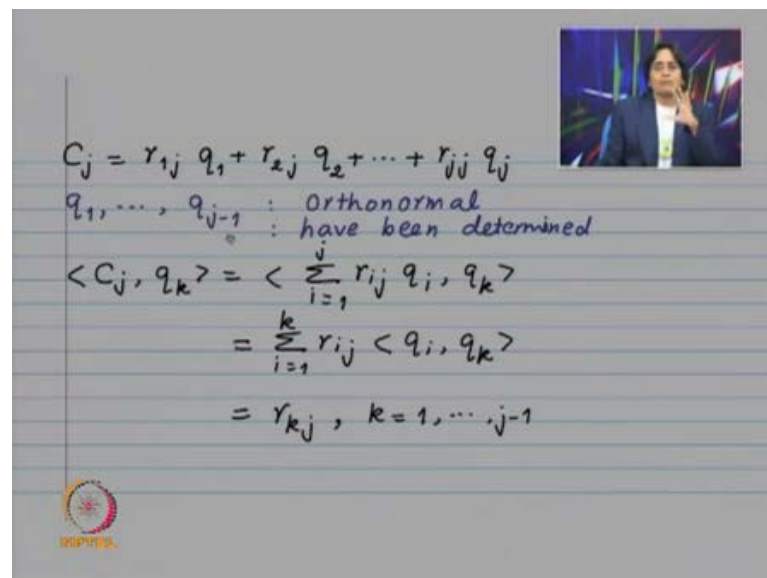 C_j = r_{1j} q_1 + r_{2j} q_2 + ... + r_{jj} q_j
q_1, ..., q_{j-1} : Orthonormal
: have been determined
<C_j, q_k> = < \sum_{i=1}^{j} r_{ij} q_i, q_k >
= \sum_{i=1}^{k} r_{ij} < q_i, q_k >
= r_{kj} , k = 1, ... , j-1
NPTEL